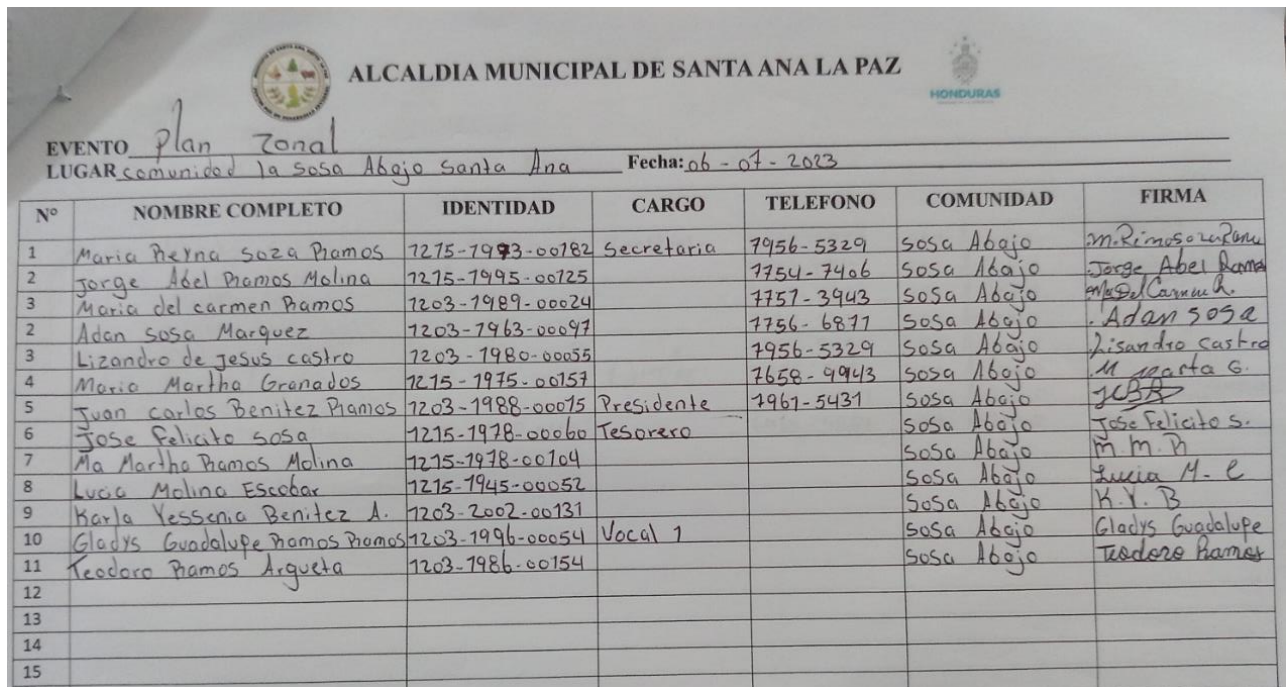 ALCALDIA MUNICIPAL DE SANTA ANA LA PAZ
HONDURAS
EVENTO Plan Zonal
LUGAR comunidad la Sosa Abajo Santa Ana Fecha: 06 - 07 - 2023
N° NOMBRE COMPLETO IDENTIDAD CARGO TELEFONO COMUNIDAD FIRMA
1 Maria Reyna Soza Ramos 1215-1993-00182 Secretaria 7956-5329 Sosa Abajo
2 Jorge Abel Ramos Molina 1215-1995-00125 7754-7406 Sosa Abajo Jorge Abel Ramos
3 Maria del carmen Ramos 1203-1989-00024 7757-3943 Sosa Abajo Ma Del Carmen R.
2 Adan sosa Marquez 1203-1963-00097 7756-6811 Sosa Abajo Adan sosa
3 Lizandro de Jesus castro 1203-1980-00055 7956-5329 Sosa Abajo Lisandro castro
4 Maria Martha Granados 1215-1975-00157 7658-9943 Sosa Abajo M marta G.
5 Juan carlos Benitez Ramos 1203-1988-00015 Presidente 7961-5431 Sosa Abajo JCBR
6 Jose felicito sosa 1215-1978-00060 Tesorero Sosa Abajo Jose Felicito S.
7 Ma Martha Ramos Molina 1215-1978-00104 Sosa Abajo m. m. R
8 Lucia Molina Escobar 1215-1945-00052 Sosa Abajo Lucia M. E
9 Karla Yessenia Benitez A. 1203-2002-00131 Sosa Abajo K. Y. B
10 Gladys Guadalupe Ramos Ramos 1203-1996-00054 Vocal 1 Sosa Abajo Gladys Guadalupe
11 Teodoro Ramos Argueta 1203-1986-00154 Sosa Abajo Teodoro Ramos
12
13
14
15